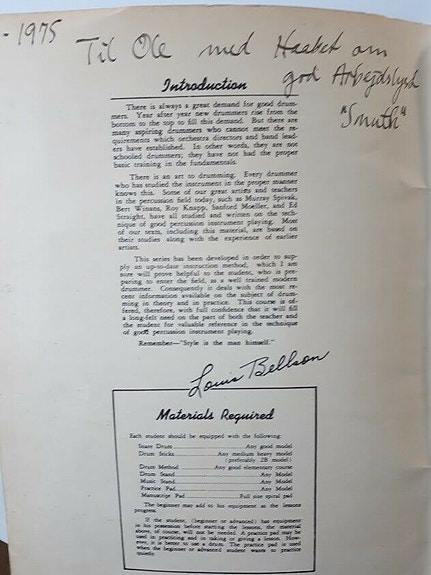 - 1975
Til Ole med Haabet om
god Arbejdslyst
"Smuth"
Introduction
There is always a great demand for good drum-
mers. Year after year new drummers rise from the
bottom to the top to fill this demand. But there are
many aspiring drummers who cannot meet the re-
quirements which orchestra directors and band lead-
ers have established. In other words, they are not
schooled drummers; they have not had the proper
basic training in the fundamentals.
There is an art to drumming. Every drummer
who has studied the instrument in the proper manner
knows this. Some of our great artists and teachers
in the percussion field today, such as Murray Spivak,
Bert Winans, Roy Knapp, Sanford Moeller, and Ed
Straight, have all studied and written on the tech-
nique of good percussion instrument playing. Most
of our texts, including this material, are based on
their studies along with the experience of earlier
artists.
This series has been developed in order to sup-
ply an up-to-date instruction method, which I am
sure will prove helpful to the student, who is pre-
paring to enter the field, as a well trained modern
drummer. Consequently it deals with the most re-
cent information available on the subject of drum-
ming in theory and in practice. This course is of-
fered, therefore, with full confidence that it will fill
a long-felt need on the part of both the teacher and
the student for valuable reference in the technique
of good percussion instrument playing.
Remember—"Style is the man himself."
Louis Bellson
Materials Required
Each student should be equipped with the following:
Snare Drum ........ Any good model
Drum Sticks ........ Any medium heavy model
(preferably 2B model)
Drum Method ........ Any good elementary course
Drum Stand ........ Any Model
Music Stand ........ Any Model
Practice Pad ........ Any Model
Manuscript Pad ........ Full size spiral pad
The beginner may add to his equipment as the lessons
progress.
If the student, (beginner or advanced) has equipment
in his possession before starting the lessons, the material
above, of course, will not be needed. A practice pad may be
used in practicing and in taking or giving a lesson. How-
ever, it is better to use a drum. The practice pad is used
when the beginner or advanced student wants to practice
quietly.